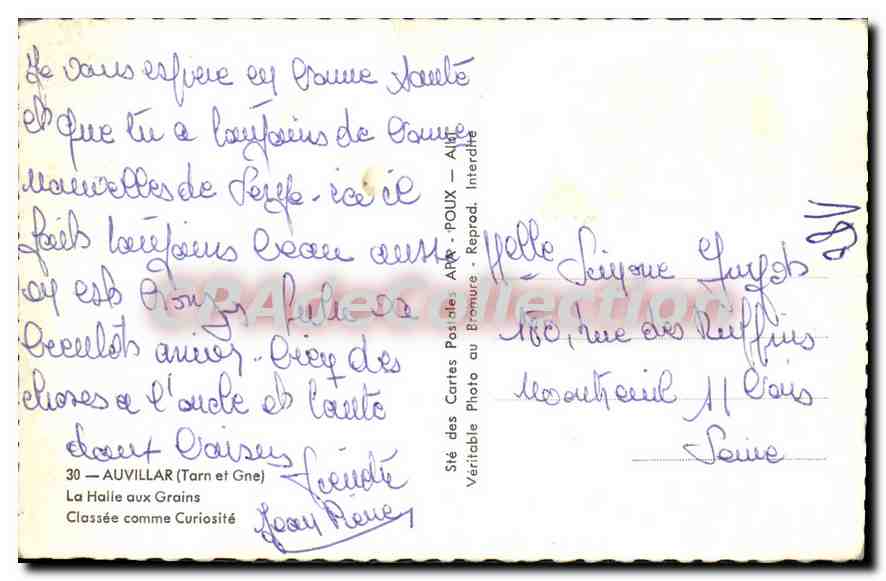 Je vous espère en bonne santé
et que tu a toujours de bonnes
nouvelles de Serge - ici il
fait toujours beau aussi
on est
bientôt amies - bien des
choses a l'oncle et tante
dont baisers
Jean Pierre
30 — AUVILLAR (Tarn et Gne)
La Halle aux Grains
Classée comme Curiosité
Sté des Cartes Postales APA - POUX — Albi
Véritable Photo au Bromure - Reprod. Interdite
Melle Simone
160, rue des Ruffins
Montreuil s/ Bois
Seine
CPAdeCollection